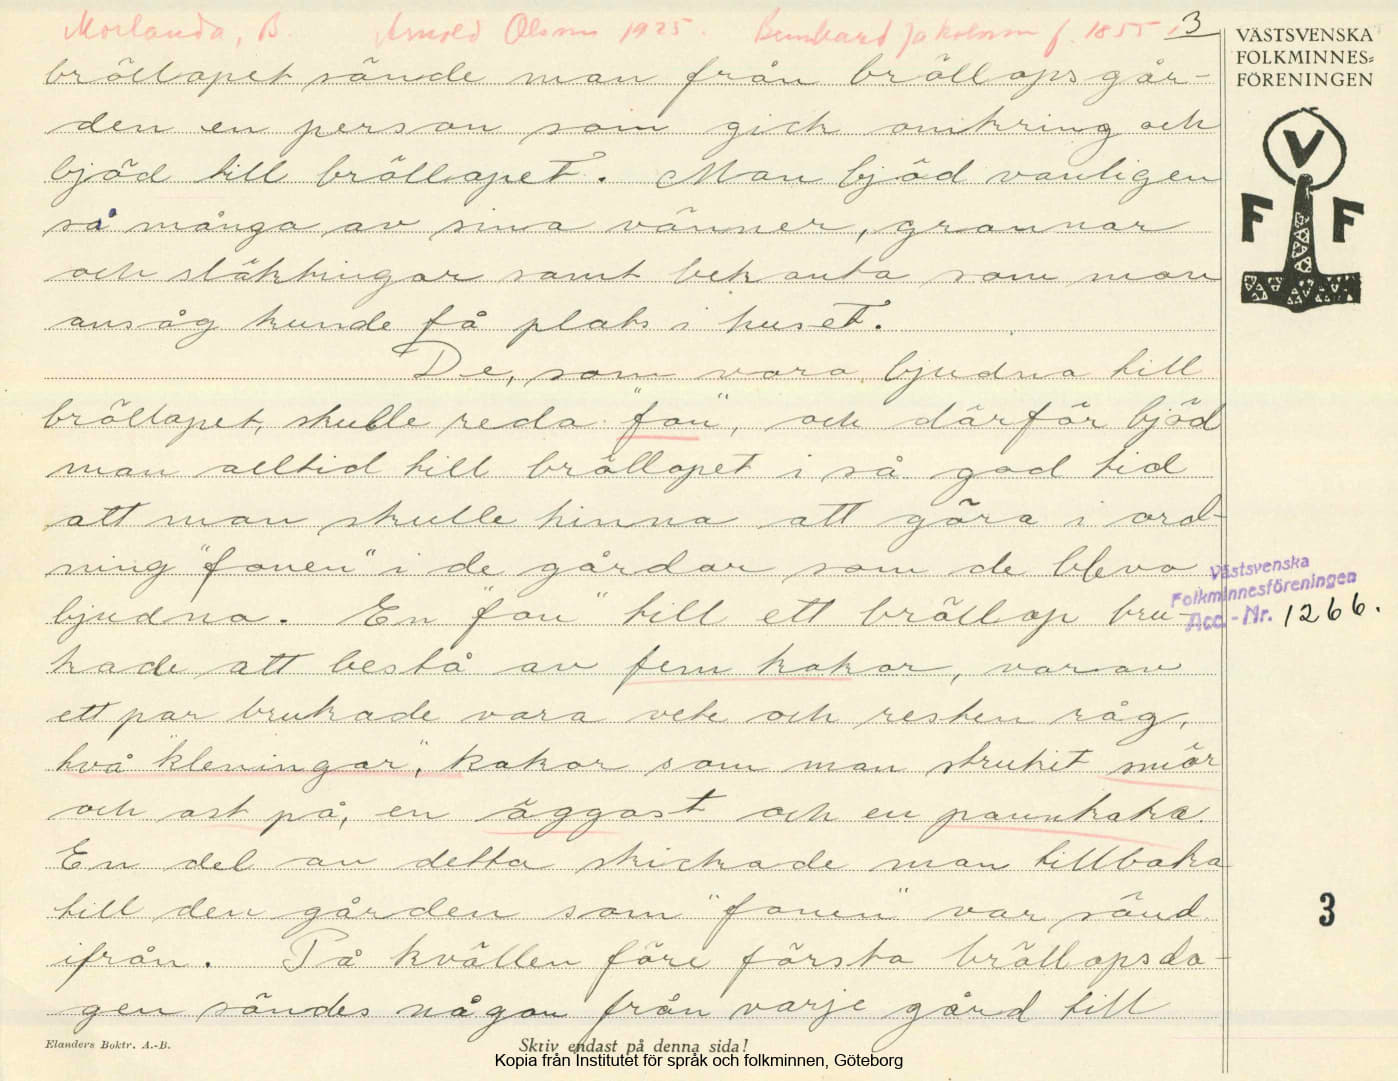 Morlanda, B. Arnold Olsson 1925. Bernhard Jakobsson f. 1855 i 3
VÄSTSVENSKA
FOLKMINNES=
FÖRENINGEN
V
F F
bröllopet sände man från bröllopsgår-
den en person som gick omkring och
bjöd till bröllopet. Man bjöd vanligen
så många av sina vänner, grannar
och släktingar samt bekanta som man
ansåg kunde få plats i huset.
De, som vara bjudna till
bröllopet, skulle reda "fon", och därför bjöd
man alltid till bröllopet i så god tid
att man skulle hinna att göra i ord-
ning "fonen" i de gårdar som de bleva
bjudna. En "fon" till ett bröllop bru-
kade att bestå av fem kakor, varav
ett par brukade vara vete och resten råg,
två "kleningar", kakor som man strukit smör
och ost på, en äggost och en pannkaka.
En del av detta skickade man tillbaka
till den gården som "fonen" var sänd
ifrån. På kvällen före första bröllopsda-
gen sändes någon från varje gård till
Västsvenska
Folkminnesföreningen
Acc.-Nr. 1266.
3
Elanders Boktr. A.-B.
Skriv endast på denna sida!
Kopia från Institutet för språk och folkminnen, Göteborg